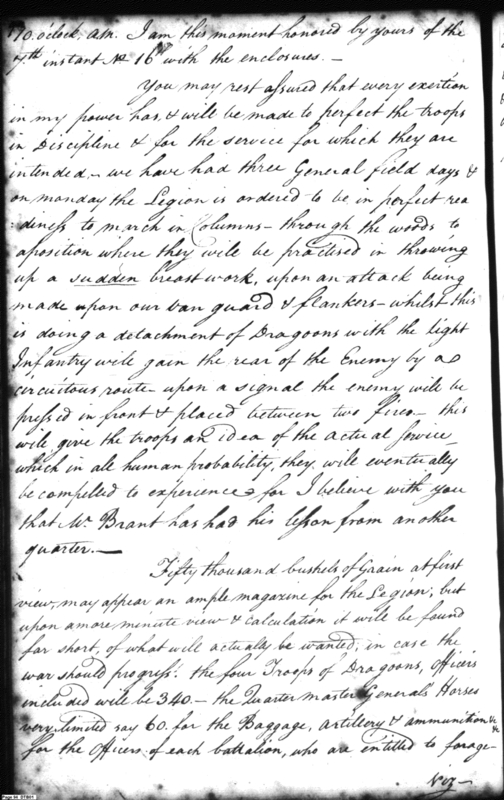 10. oclock, am. I am this moment honored by yours of the
7th instant No 16 with the enclosures. —
You may rest assured that every exertion
in my power has, & will be made to perfect the troops
in Discipline & for the service for which they are
intended, — we have had three General field days &
on monday the Legion is ordered to be in perfect rea
=diness to march in Columns — through the woods to
a position where they will be practised in throwing
up a sudden breast work, upon an attack being
made upon our van guard & flankers — whilst this
is doing a detachment of Dragoons with the light
Infantry will gain the rear of the Enemy by a
circuitous route upon a signal the enemy will be
pressed in front & placed between two fires — this
will give the troops an idea of the actual service,
which in all human probability, they will eventually
be compelled to experience for I believe with you
that Mr Brant has had his lesson from another
quarter. —
Fifty thousand bushels of Grain at first
view, may appear an ample magazine for the Legion; but
upon a more minute view & calculation it will be found
far short, of what will actually be wanted, in case the
war should progress: the four Troops of Dragoons, Officers
included will be 340. — the Quarter master General's Horses
very limited say 60. for the Baggage, artillery & ammunition &c &c
for the Officers of each battalion, who are intitled to forage
viz —
Page 14